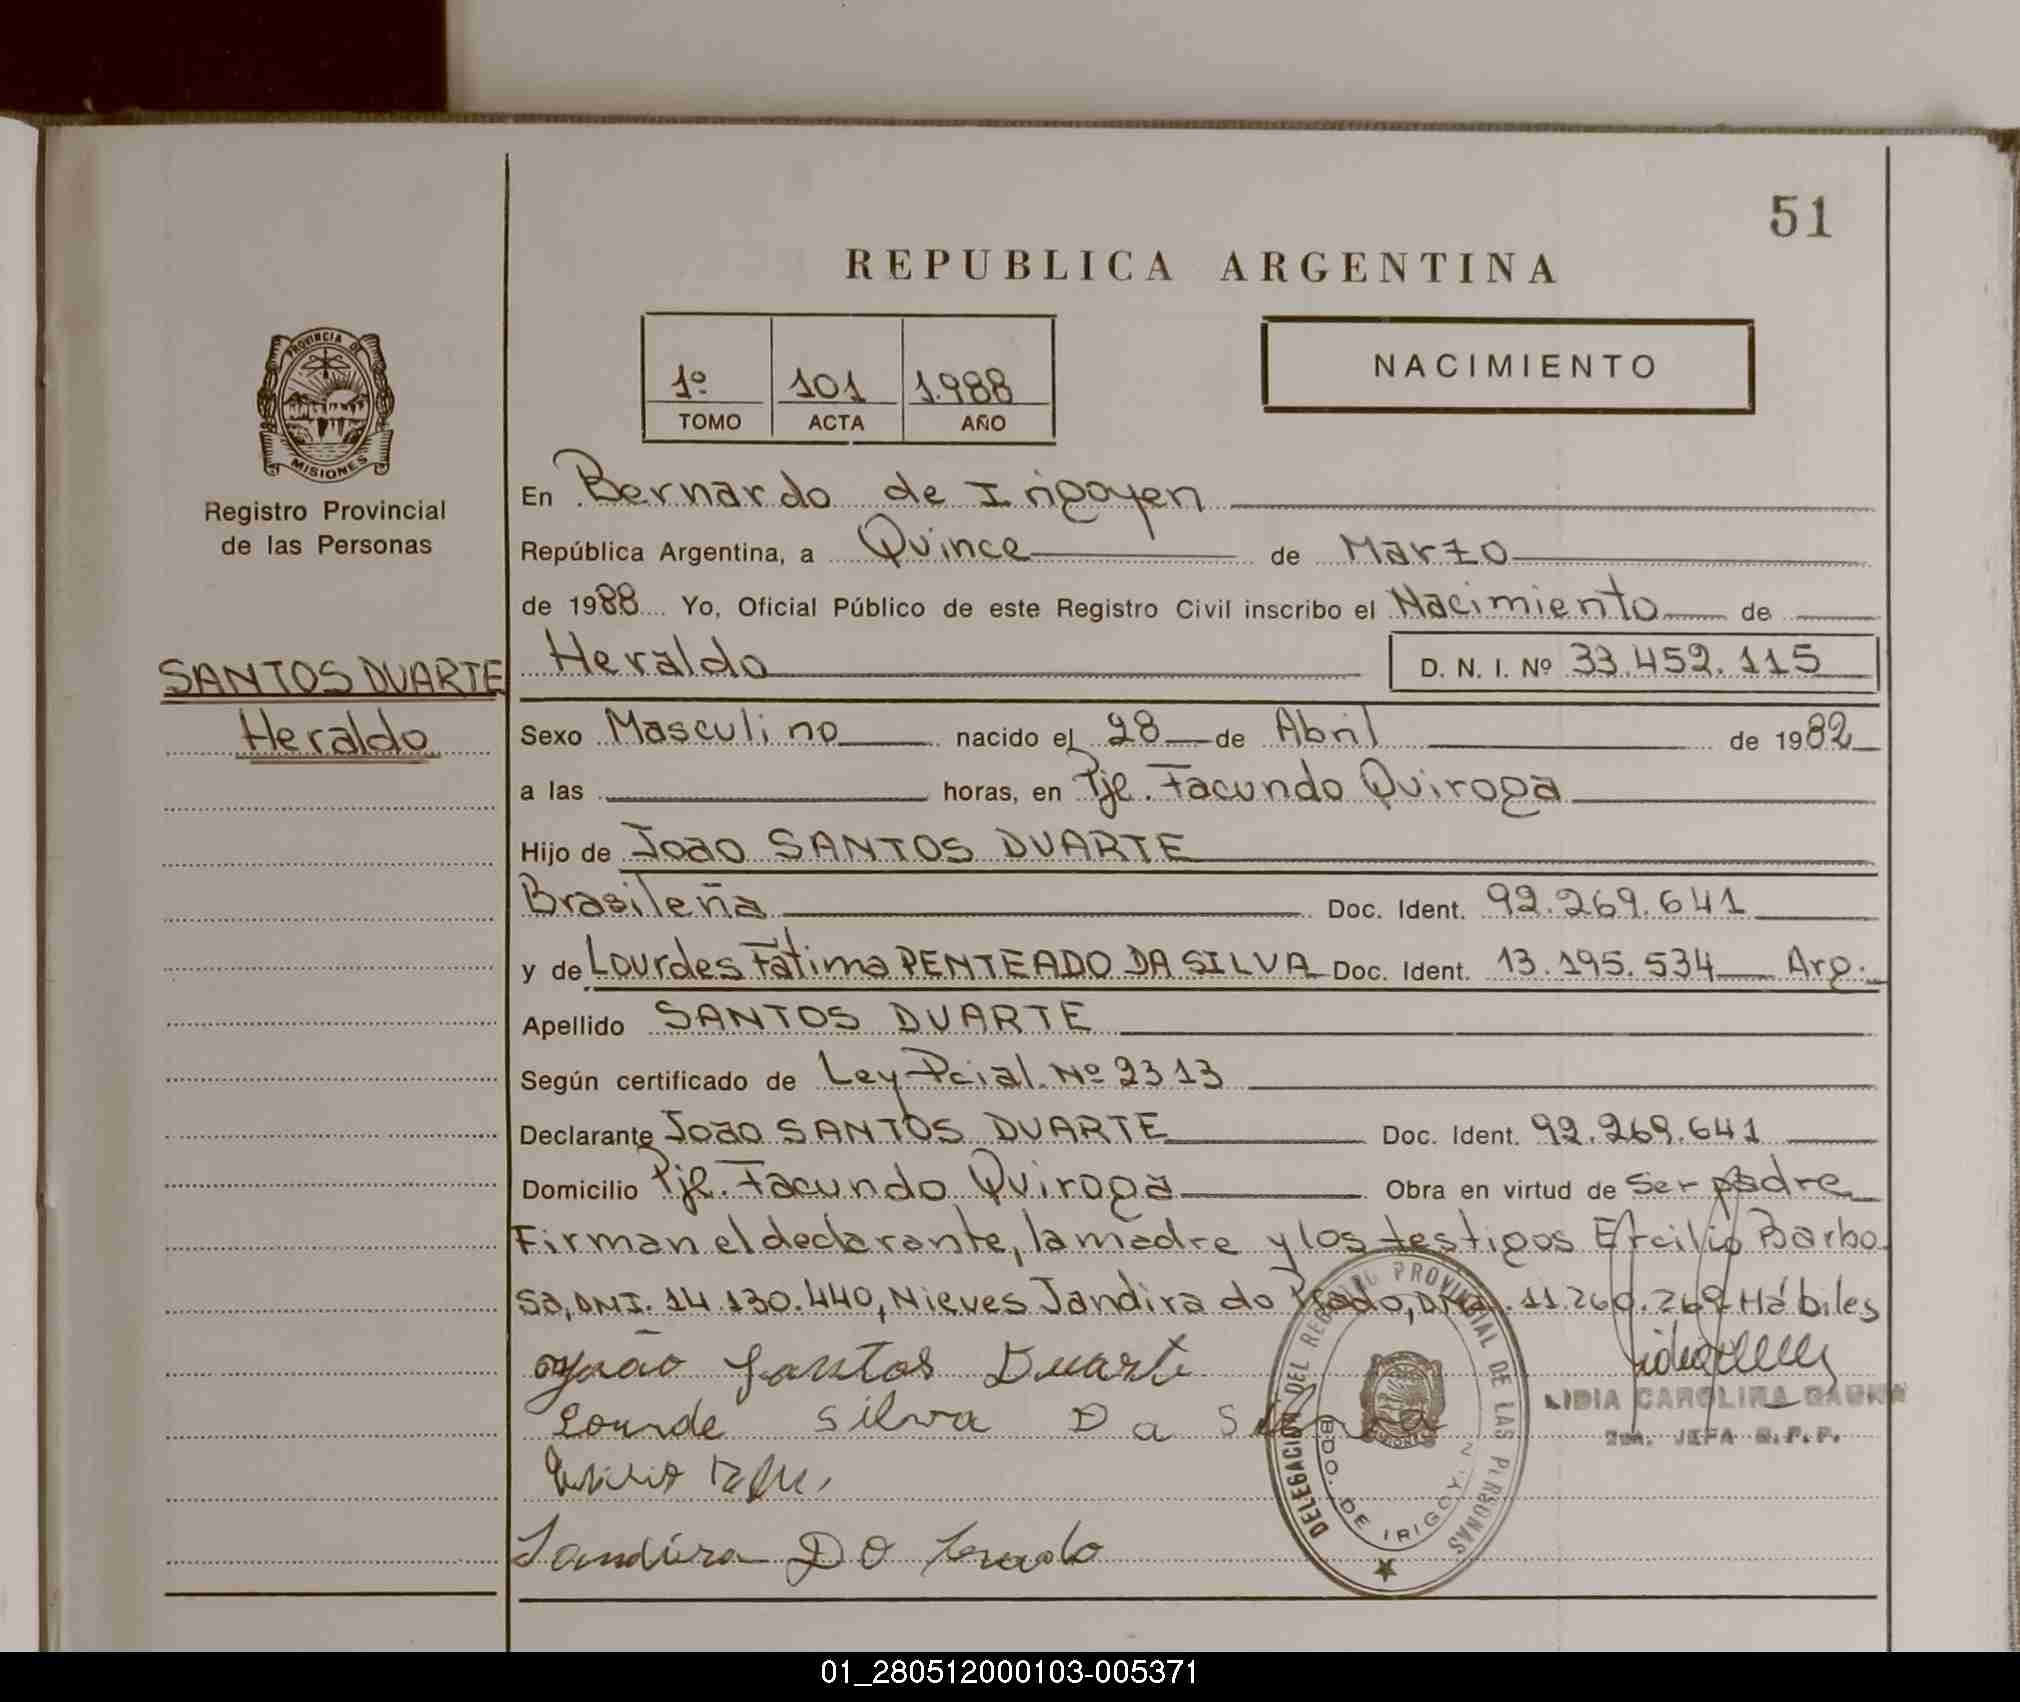 51
REPUBLICA ARGENTINA
PROVINCIA DE
MISIONES
Registro Provincial
de las Personas
1º 101 1.988
TOMO ACTA AÑO
NACIMIENTO
En Bernardo de Irigoyen
República Argentina, a Quince de Marzo
de 1988 Yo, Oficial Público de este Registro Civil inscribo el Nacimiento de
SANTOS DUARTE
Heraldo
Heraldo D. N. I. Nº 33.452.115
Sexo Masculino nacido el 28 de Abril de 1982
a las horas, en Pje. Facundo Quiroga
Hijo de Joao SANTOS DUARTE
Brasileña Doc. Ident. 92.269.641
y de Lourdes Fátima PENTEADO DA SILVA Doc. Ident. 13.195.534 Arg.
Apellido SANTOS DUARTE
Según certificado de Ley Pcial. Nº 2313
Declarante Joao SANTOS DUARTE Doc. Ident. 92.269.641
Domicilio Pje. Facundo Quiroga Obra en virtud de Ser padre
Firman el declarante, la madre y los testigos Ercilio Barbo
sa, DNI. 14.130.440, Nieves Jandira do Prado, DNI. 11.260.269 Hábiles
João Santos Duarte
Lourde Silva Da Silva
LIDIA CAROLINA
2da. JEFA R.P.P.
Jandira DO Prado
DELEGACION DEL REGISTRO PROVINCIAL DE LAS PERSONAS
BDO. DE IRIGOY.
01_280512000103-005371